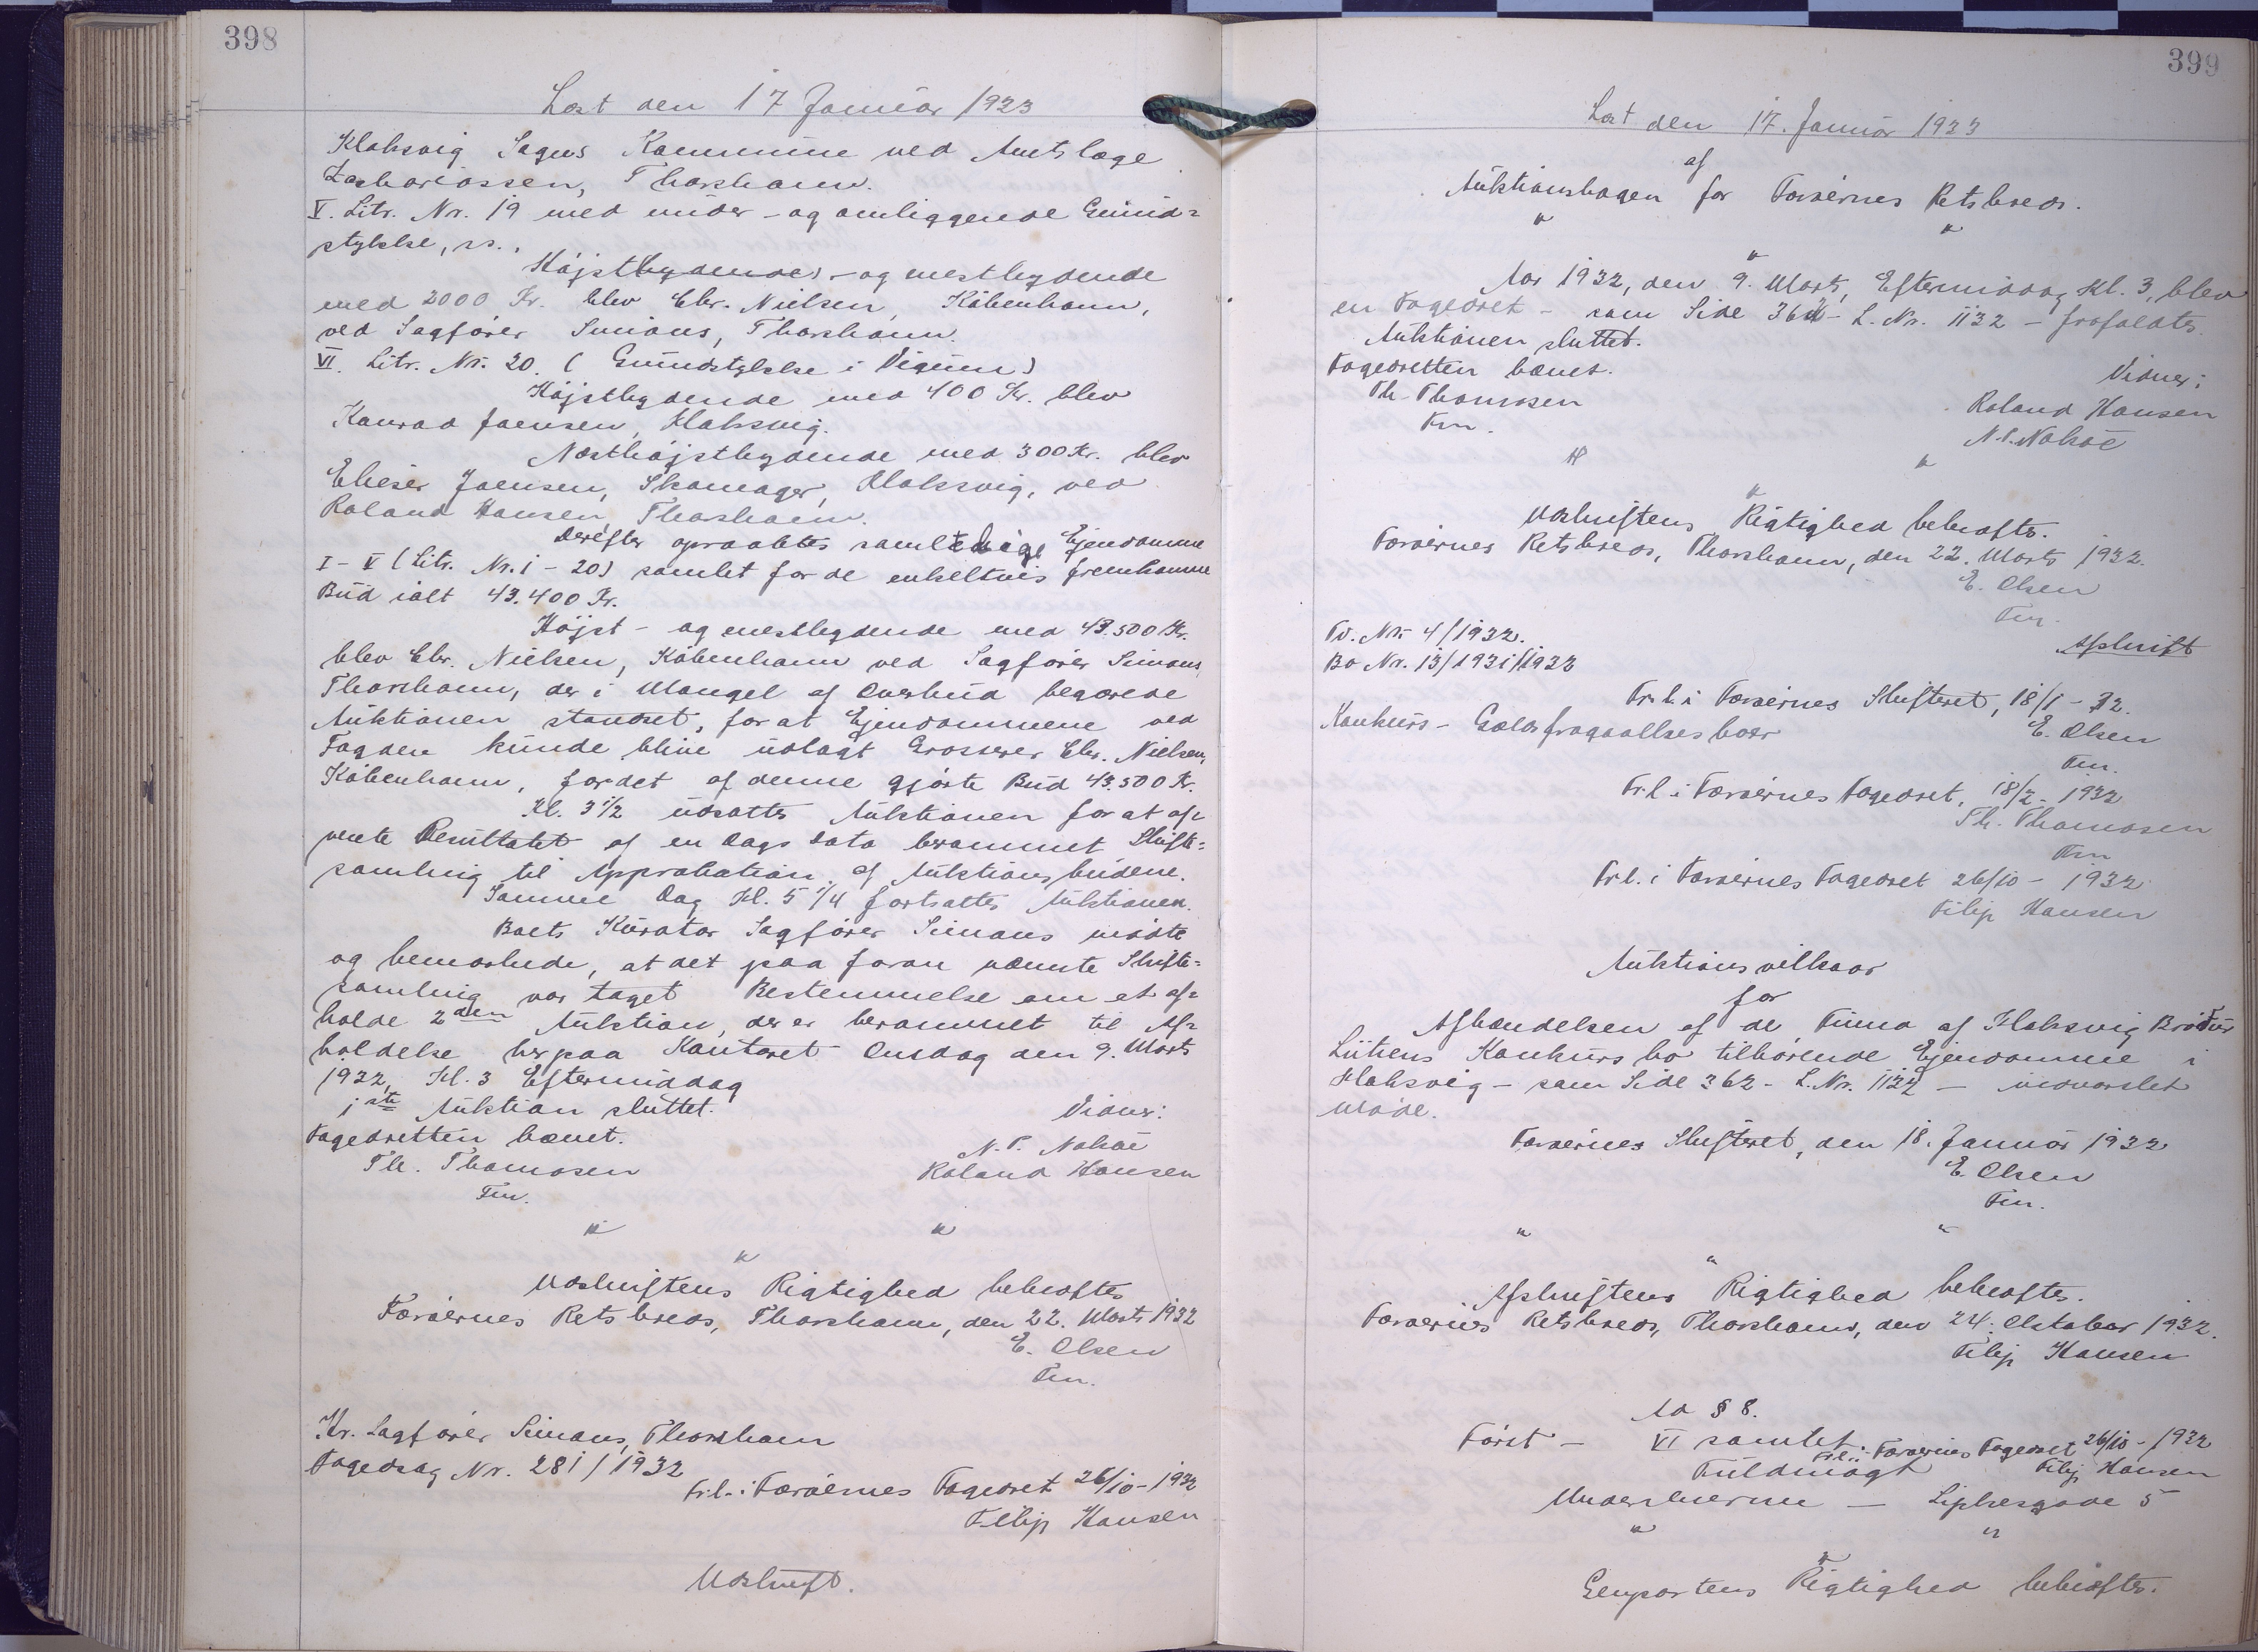 398
Læst den 17 Januar 1923
Klaksvig Sogns Kommune ved Amtslæge
Zachariassen, Thorshavn.
V. Litr. Nr. 19 med under- og omliggende Grund=
stykke, ss.,
Højstbydende, - og mestbydende
med 2000 Kr. blev Chr. Nielsen, København,
ved Sagfører Simons, Thorshavn.
VI. Litr. Nr. 20. (Grundstykke i Vigum)
Højstbydende med 400 Kr. blev
Konrad Joensen, Klaksvig.
Næsthøjstbydende med 300 Kr. blev
Elieser Joensen, Skomager, Klaksvig, ved
Roland Hansen, Thorshavn.
Derefter opraabtes samtlige Ejendomme
I - V (Litr. Nr. 1 - 20) samlet for de enkeltvis fremkomne
Bud ialt 43.400 Kr.
Højst - og mestbydende med 43.500 Kr.
blev Chr. Nielsen, København ved Sagfører Simons,
Thorshavn, der i Mangel af Overbud begærede
Auktionen standset, for at Ejendommene ved
Fogden kunde blive udlagt Grosserer Chr. Nielsen,
København, for det af denne gjorte Bud 43.500 Kr.
Kl. 3 1/2 udsattes Auktionen for at af=
vente Resultatet af en Dags Dato berammet Skifte=
samling til Approbation af Auktionsbudene.
Samme Dag Kl. 5 1/4 fortsattes Auktionen.
Boets Kurator Sagfører Simons mødte
og bemærkede, at det paa foran nævnte Skifte=
samling var taget Bestemmelse om at af=
holde 2den Auktion, der er berammet til Af=
holdelse her paa Kontoret Onsdag den 9. Marts
1932, Kl. 3 Eftermiddag
1ste Auktion sluttet.
Fogedretten hævet. Vidner:
Th. Thomosen N. P. Nolsøe
Fm. Roland Hansen
" "
"
Udskriftens Rigtighed bekræftes
Færøernes Retskreds, Thorshavn, den 22. Marts 1932
E. Olsen
Fm.
Hr. Sagfører Simons, Thorshavn
Fogedsag Nr. 281/1932
Fr.l. i Færøernes Fogedret 26/10-1932
Filip Hansen
Udskrift.
399
Læst den 17. Januar 1933
af
Auktionsbogen for Færøernes Retskreds.
" "
"
Aar 1932, den 9. Marts, Eftermiddag Kl. 3, blev
en Fogedret - som Side 362 - L. Nr. 1132 - frafaldtes.
Auktionen sluttet.
Fogedretten hævet. Vidner:
Th. Thomosen Roland Hansen
Fm. N. P. Nolsøe
" "
"
Udskriftens Rigtighed bekræftes.
Færøernes Retskreds, Thorshavn, den 22. Marts 1932.
E. Olsen
Fm.
Tv. Nr. 4/1932.
Bo Nr. 13/1931/1932 Afskrift
Fr.l. i Færøernes Skifteret, 18/1 - 32.
Konkurs- Gældsfragaaelsesboer E. Olsen
Fm.
Fr.l. i Færøernes Fogedret, 18/2 - 1932
Th. Thomosen
Fm
Fr.l. i Færøernes Fogedret 26/10 - 1932
Filip Hansen
Auktionsvilkaar
for
Afhændelsen af de Firma af Klaksvig Brødur
Lützens Konkursbo tilhørende Ejendomme i
Klaksvig - som Side 362 - L. Nr. 1132 - indvarslet
Møde.
Færøernes Skifteret, den 18. Januar 1932
E. Olsen
Fm.
" "
"
Afskriftens Rigtighed bekræftes.
Færøernes Retskreds, Thorshavn, den 24. Oktober 1932.
Filip Hansen
Ad § 8.
Først - VI samlet. Fr.l. i Færøernes Fogedret 26/10 - 1932
Fuldmagt Filip Hansen
" "
"
Genpartens Rigtighed bekræftes.